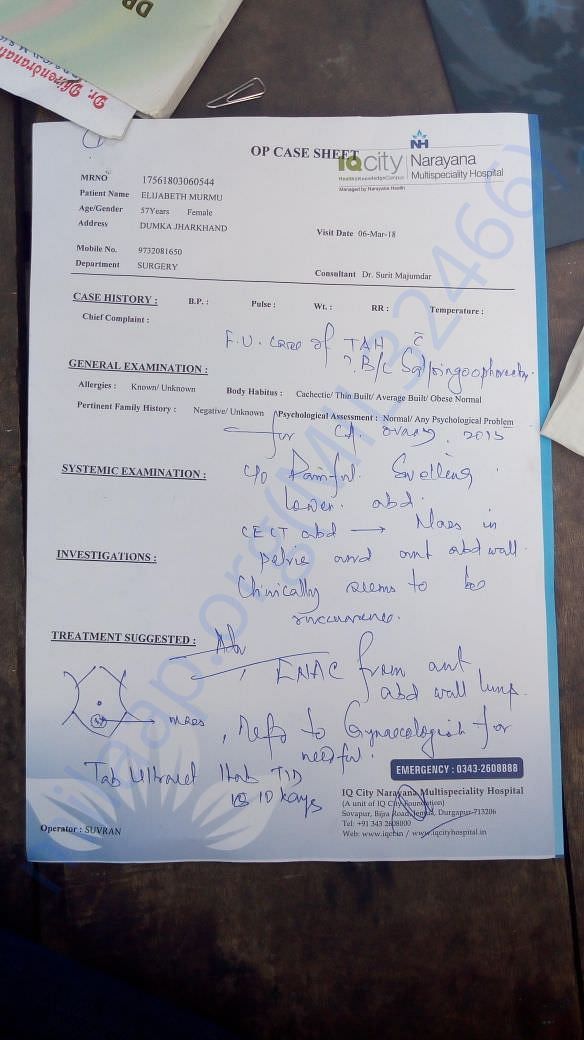 DR
Dr. Dhirendranath
OP CASE SHEET
NH
IQcity Narayana
Multispeciality Hospital
Managed by Narayana Health
MRNO 17561803060544
Patient Name ELIJABETH MURMU
Age/Gender 57Years Female
Address DUMKA JHARKHAND
Visit Date 06-Mar-18
Mobile No. 9732081650
Department SURGERY
Consultant Dr. Surit Majumdar
CASE HISTORY : B.P. : Pulse : Wt. : RR : Temperature :
Chief Complaint :
F.U. case of TAH c̄
? B/L Salpingoophorectomy
GENERAL EXAMINATION :
Allergies : Known/ Unknown Body Habitus : Cachectic/ Thin Built/ Average Built/ Obese Normal
Pertinent Family History : Negative/ Unknown Psychological Assessment : Normal/ Any Psychological Problem
for CA. ovary. 2015
SYSTEMIC EXAMINATION : C/O Painful Swelling
Lower. abd.
CECT abd → Mass in
INVESTIGATIONS : pelvic and ant abd wall.
Clinically seems to be
recurrence.
TREATMENT SUGGESTED : Adv
, FNAC from ant
abd wall lump.
mass
, Refer to Gynaecologist for
needful.
Tab Ultracet 1tab TID
10 days
EMERGENCY : 0343-2608888
IQ City Narayana Multispeciality Hospital
(A unit of IQ City Foundation)
Sovapur, Bijra Road, Jemua, Durgapur-713206
Tel: +91 343 2608000
Web: www.iqct.in / www.iqcityhospital.in
Operator : SUVRAN
milaap.org(MIL324466)